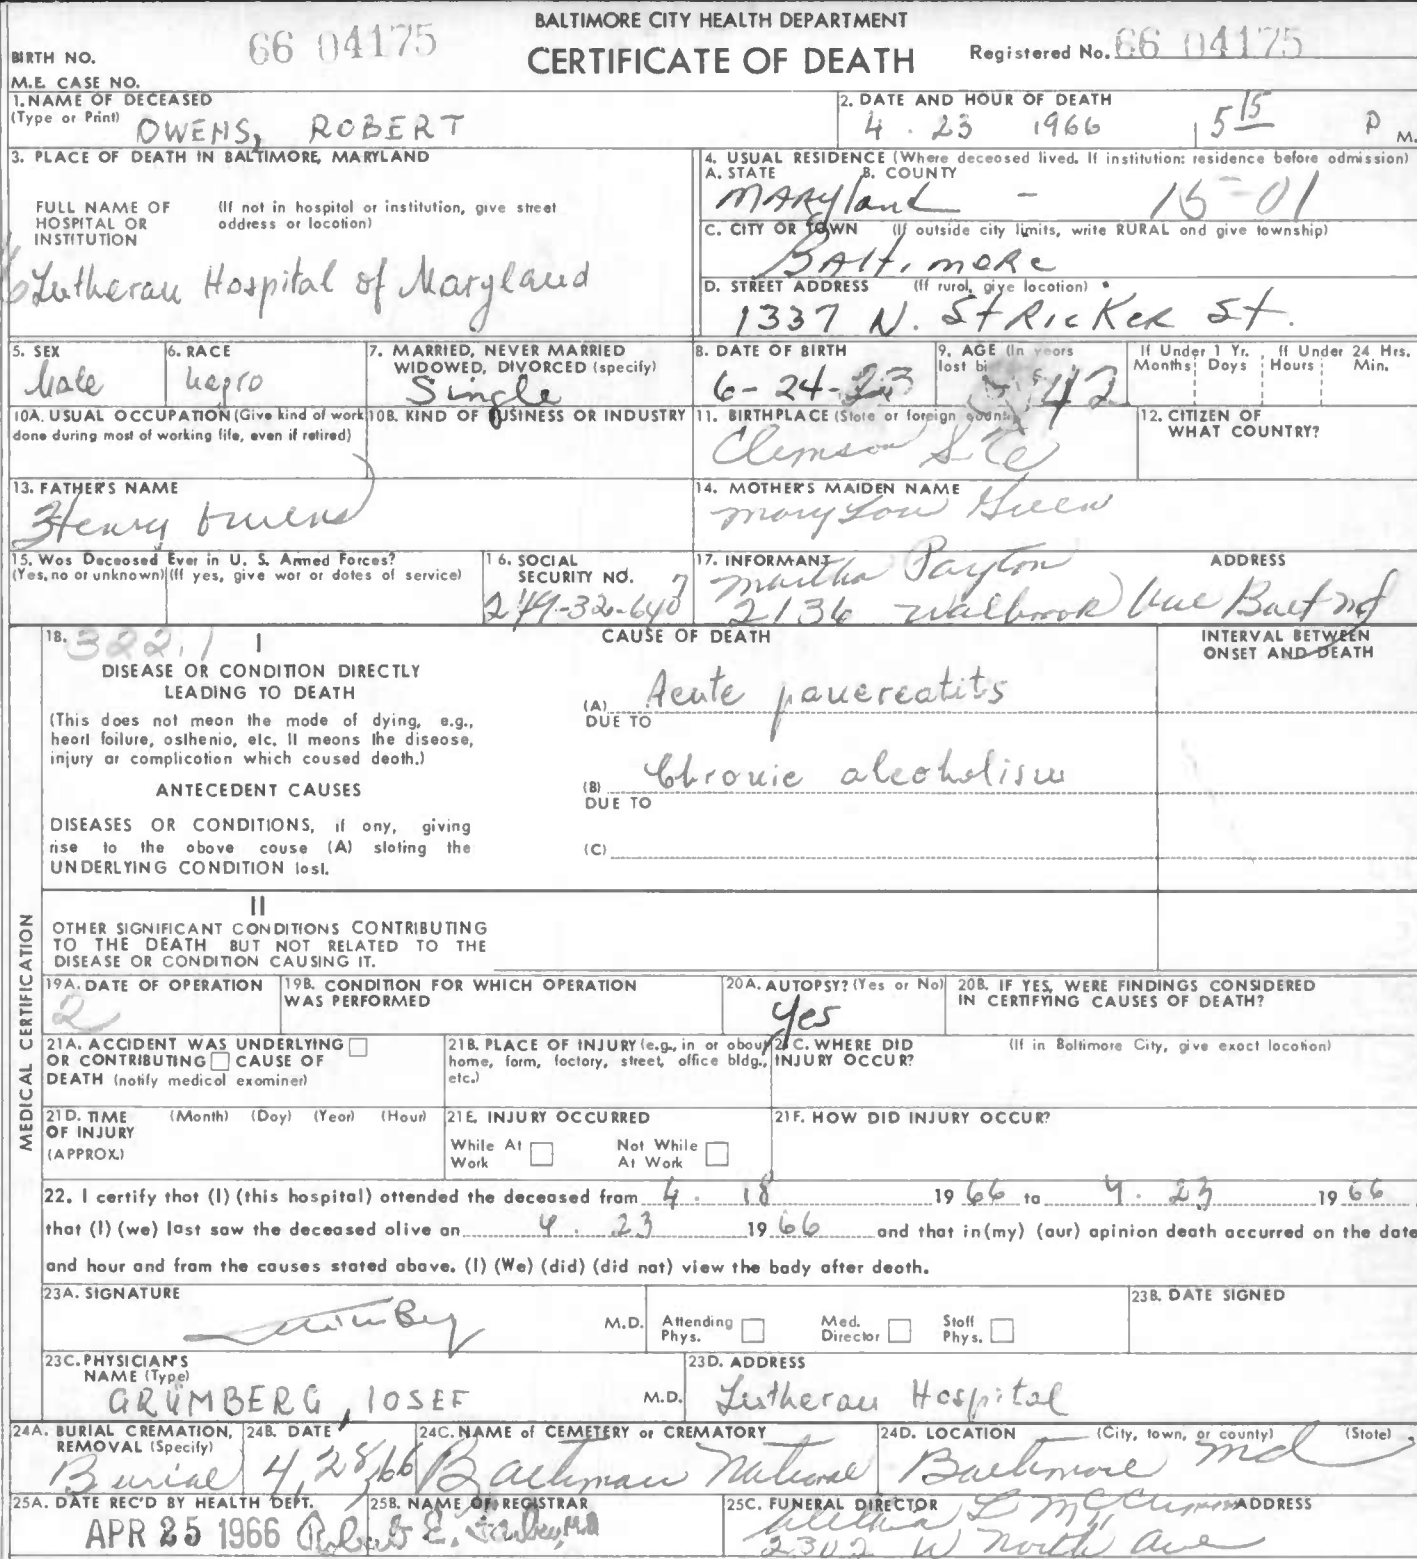 BALTIMORE CITY HEALTH DEPARTMENT
CERTIFICATE OF DEATH
BIRTH NO. 66 04175
Registered No. 66 04175
M.E. CASE NO.
1. NAME OF DECEASED
(Type or Print) OWENS, ROBERT
2. DATE AND HOUR OF DEATH
4 . 23 1966 5 15 P M.
3. PLACE OF DEATH IN BALTIMORE, MARYLAND
FULL NAME OF HOSPITAL OR INSTITUTION
(If not in hospital or institution, give street address or location)
Lutheran Hospital of Maryland
4. USUAL RESIDENCE (Where deceased lived. If institution: residence before admission)
A. STATE B. COUNTY
MARYland - 15-01
C. CITY OR TOWN (If outside city limits, write RURAL and give township)
BAltimoRe
D. STREET ADDRESS (If rural, give location)
1337 N. StRicKeR St.
5. SEX
Male
6. RACE
Negro
7. MARRIED, NEVER MARRIED WIDOWED, DIVORCED (specify)
Single
8. DATE OF BIRTH
6-24-23
9. AGE (In years
last bi
42
If Under 1 Yr. Months Days
If Under 24 Hrs. Hours Min.
10A. USUAL OCCUPATION (Give kind of work done during most of working life, even if retired)
10B. KIND OF BUSINESS OR INDUSTRY
11. BIRTHPLACE (State or foreign
Clemson
12. CITIZEN OF WHAT COUNTRY?
13. FATHER'S NAME
Henry Owens
14. MOTHER'S MAIDEN NAME
Mary Lou Green
15. Was Deceased Ever in U. S. Armed Forces?
(Yes, no or unknown) (If yes, give war or dates of service)
16. SOCIAL SECURITY NO.
249-32-6407
17. INFORMANT ADDRESS
Martha Payton
2136 Walbrook Ave Balt Md
MEDICAL CERTIFICATION
18. 322.1
I
DISEASE OR CONDITION DIRECTLY LEADING TO DEATH
(This does not mean the mode of dying, e.g., heart failure, asthenia, etc. It means the disease, injury or complication which caused death.)
ANTECEDENT CAUSES
DISEASES OR CONDITIONS, if any, giving rise to the above cause (A) stating the UNDERLYING CONDITION last.
CAUSE OF DEATH
INTERVAL BETWEEN ONSET AND DEATH
(A) Acute pancreatits
DUE TO
(B) Chronic alcoholism
DUE TO
(C)
II
OTHER SIGNIFICANT CONDITIONS CONTRIBUTING TO THE DEATH BUT NOT RELATED TO THE DISEASE OR CONDITION CAUSING IT.
19A. DATE OF OPERATION
2
19B. CONDITION FOR WHICH OPERATION WAS PERFORMED
20A. AUTOPSY? (Yes or No)
Yes
20B. IF YES, WERE FINDINGS CONSIDERED IN CERTIFYING CAUSES OF DEATH?
21A. ACCIDENT WAS UNDERLYING OR CONTRIBUTING CAUSE OF DEATH (notify medical examiner)
21B. PLACE OF INJURY (e.g., in or about home, farm, factory, street, office bldg., etc.)
21C. WHERE DID INJURY OCCUR?
(If in Baltimore City, give exact location)
21D. TIME OF INJURY (APPROX.)
(Month) (Day) (Year) (Hour)
21E. INJURY OCCURRED
While At Work
Not While At Work
21F. HOW DID INJURY OCCUR?
22. I certify that (I) (this hospital) attended the deceased from 4 . 18 1966 to 4 . 23 1966
that (I) (we) last saw the deceased alive on 4 . 23 1966 and that in (my) (our) opinion death occurred on the date
and hour and from the causes stated above. (I) (We) (did) (did not) view the body after death.
23A. SIGNATURE
M.D.
Attending Phys.
Med. Director
Staff Phys.
23B. DATE SIGNED
23C. PHYSICIAN'S NAME (Type)
GRÜMBERG, IOSEF M.D.
23D. ADDRESS
Lutheran Hospital
24A. BURIAL CREMATION, REMOVAL (Specify)
Burial
24B. DATE
4,28,66
24C. NAME of CEMETERY or CREMATORY
National
24D. LOCATION (City, town, or county) (State)
Baltimore Md
25A. DATE REC'D BY HEALTH DEPT.
APR 25 1966
25B. NAME OF REGISTRAR
Robert E. Farber, M.D.
25C. FUNERAL DIRECTOR ADDRESS
2302 W North Ave